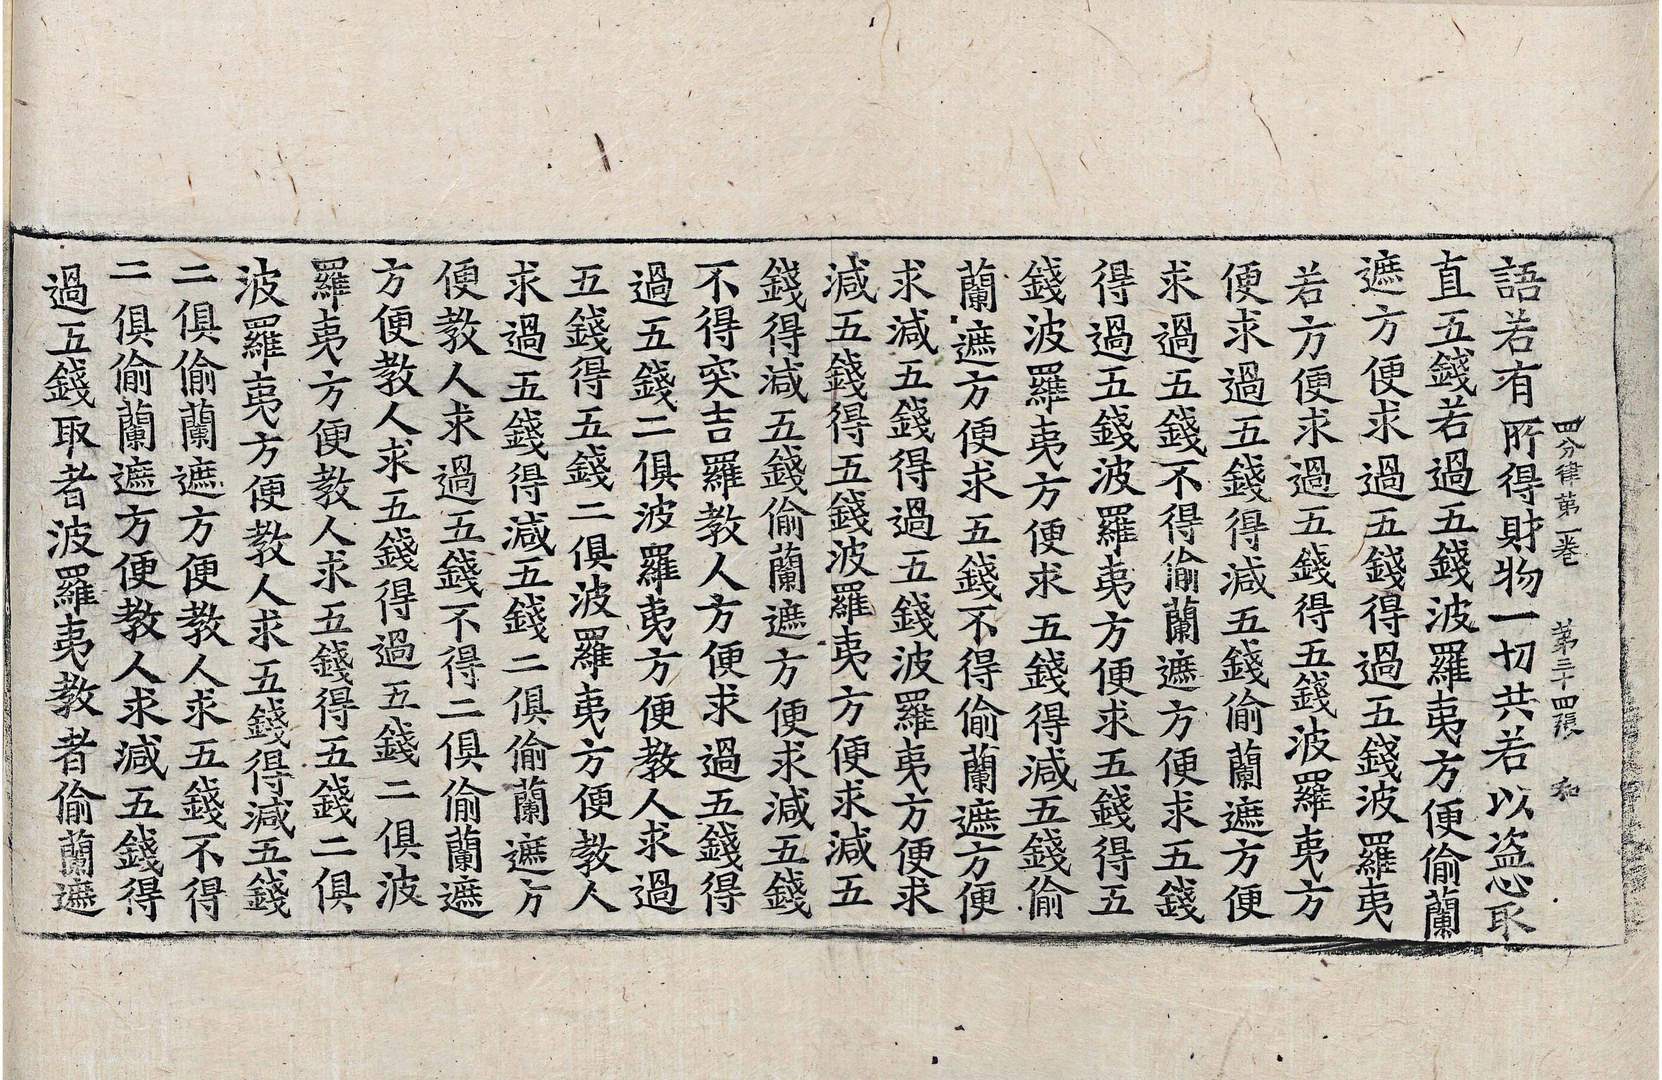 四分律第一卷 第三十四張 和
語若有所得財物一切共若以盜心取
直五錢若過五錢波羅夷方便偷蘭
遮方便求過五錢得過五錢波羅夷
若方便求過五錢得五錢波羅夷方
便求過五錢得減五錢偷蘭遮方便
求過五錢不得偷蘭遮方便求五錢
得過五錢波羅夷方便求五錢得五
錢波羅夷方便求五錢得減五錢偷
蘭遮方便求五錢不得偷蘭遮方便
求減五錢得過五錢波羅夷方便求
減五錢得五錢波羅夷方便求減五
錢得減五錢偷蘭遮方便求減五錢
不得突吉羅教人方便求過五錢得
過五錢二俱波羅夷方便教人求過
五錢得五錢二俱波羅夷方便教人
求過五錢得減五錢二俱偷蘭遮方
便教人求過五錢不得二俱偷蘭遮
方便教人求五錢得過五錢二俱波
羅夷方便教人求五錢得五錢二俱
波羅夷方便教人求五錢得減五錢
二俱偷蘭遮方便教人求五錢不得
二俱偷蘭遮方便教人求減五錢得
過五錢取者波羅夷教者偷蘭遮